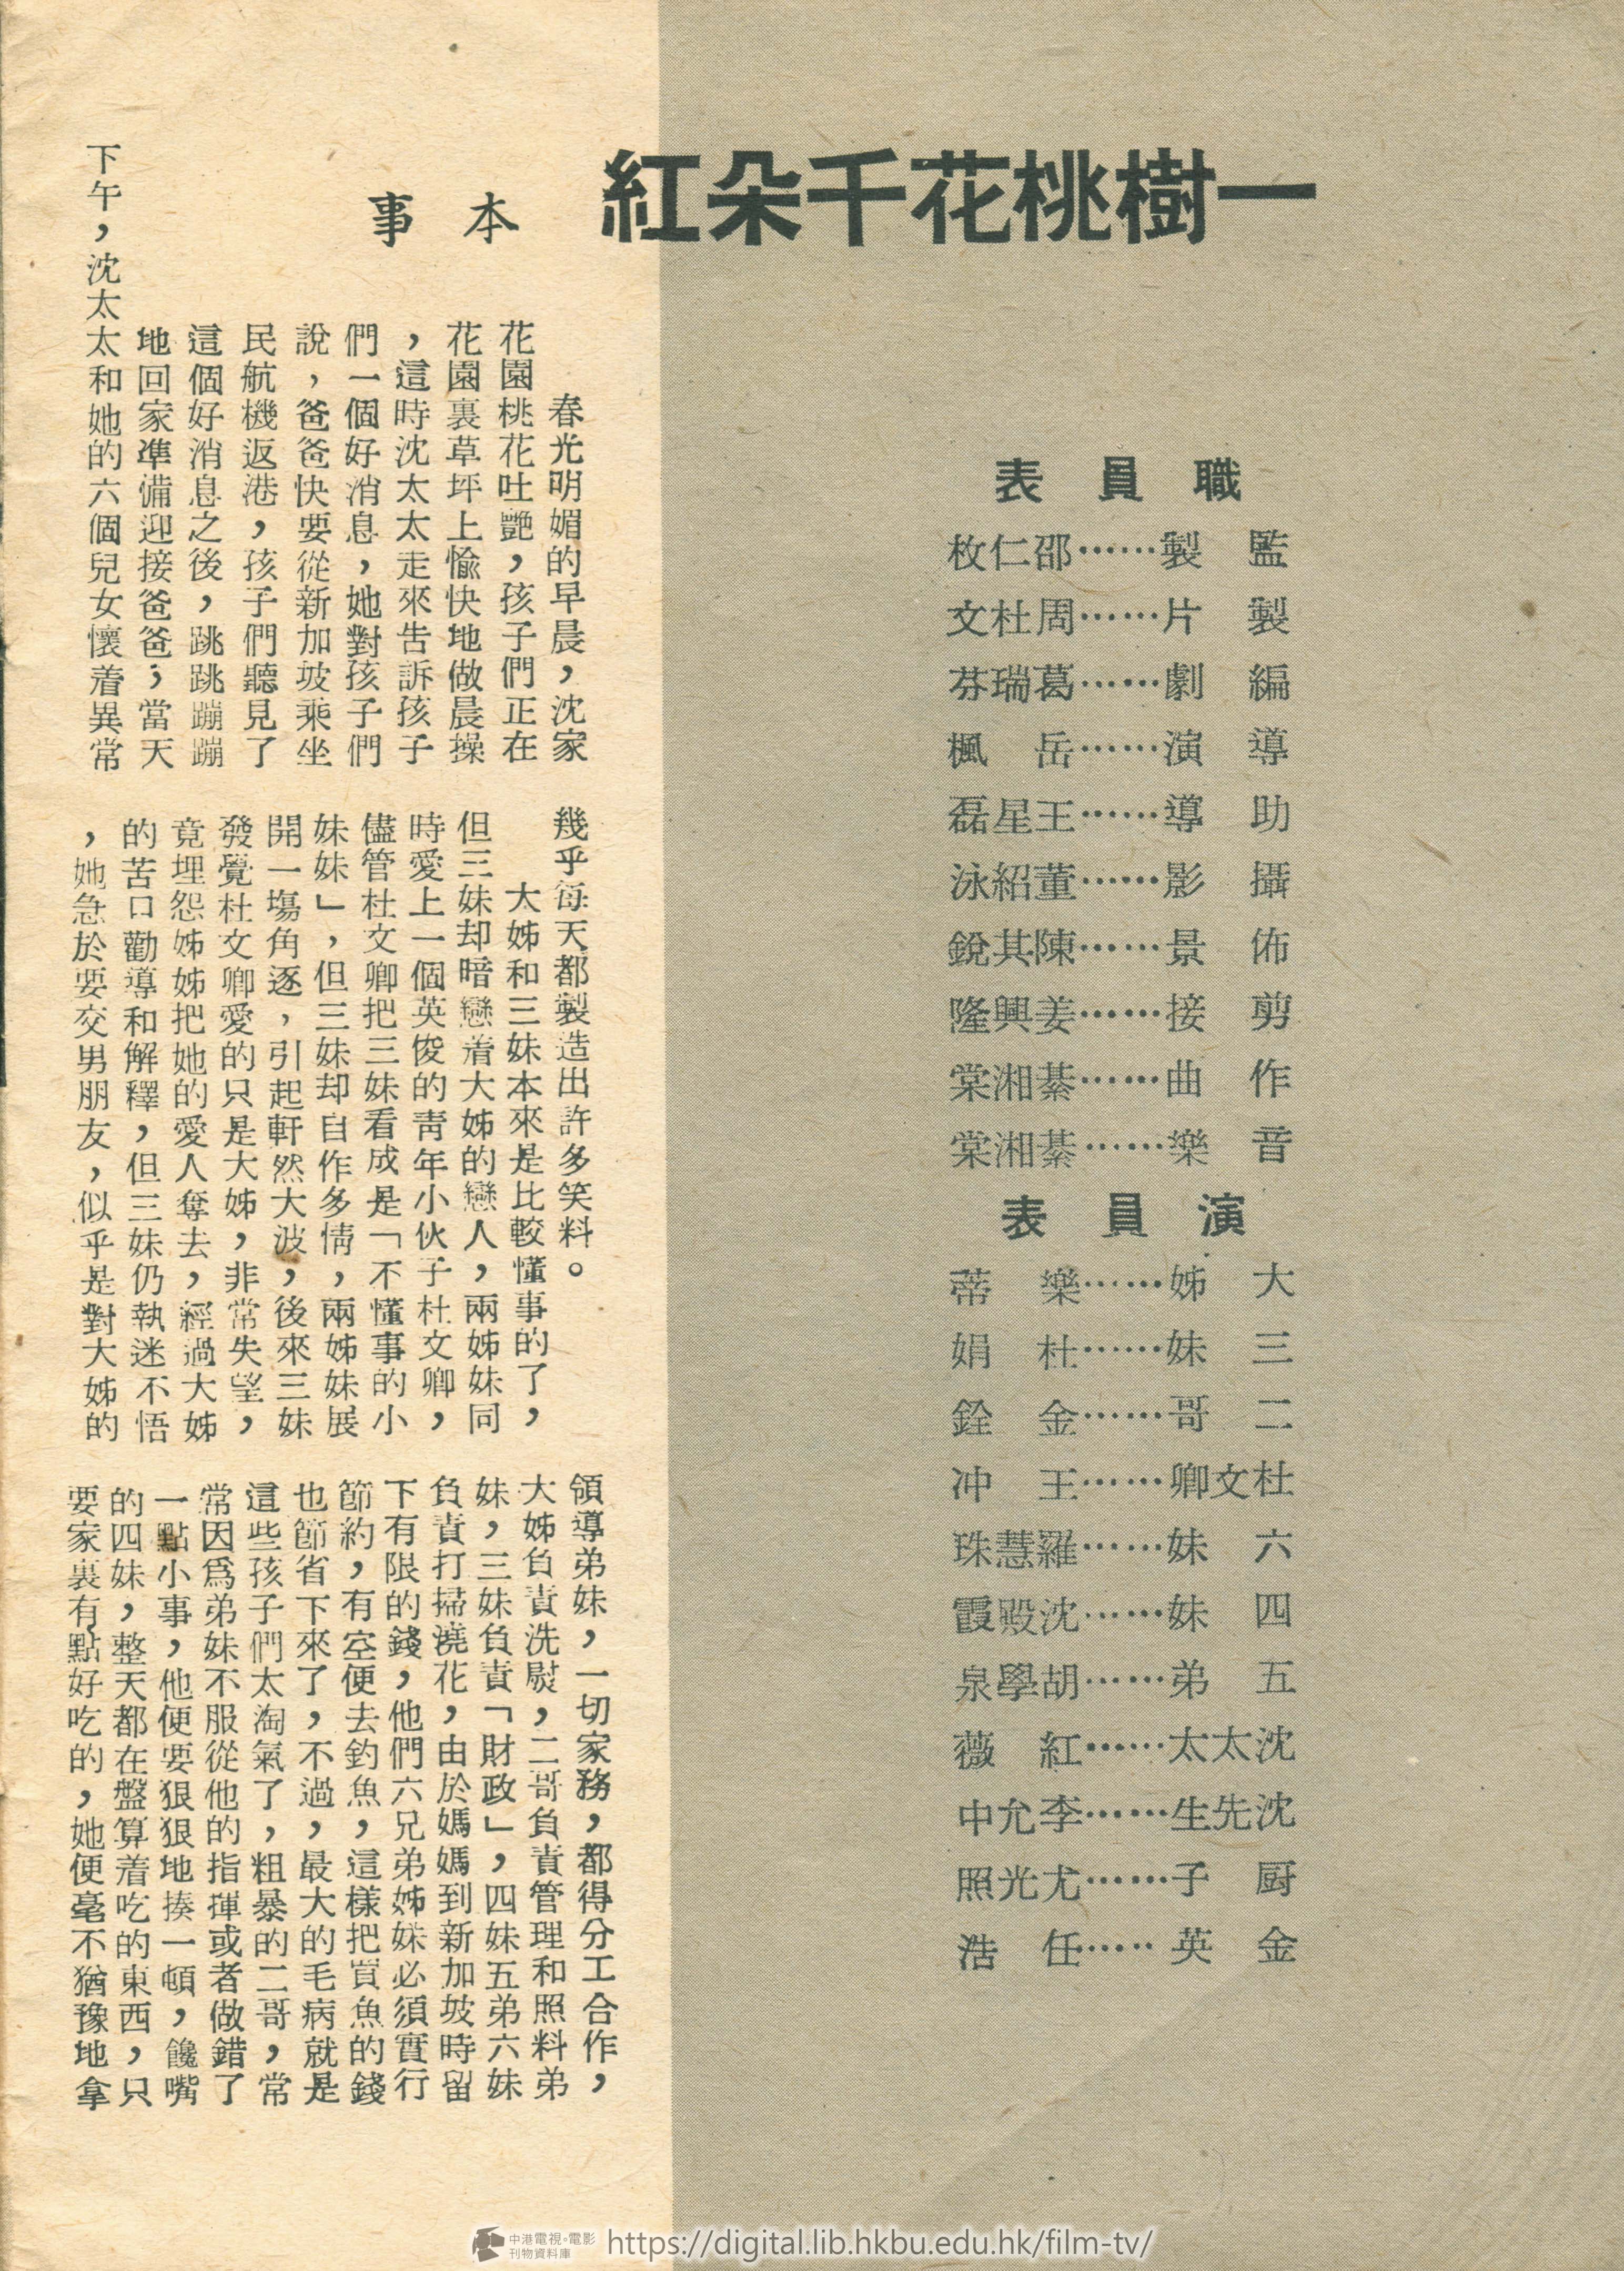 一樹桃花千朵紅
本事
職員表
監製……邵仁枚
製片……周杜文
編劇……葛瑞芬
導演……岳楓
助導……王星磊
攝影……董紹泳
佈景……陳其銳
剪接……姜興隆
作曲……綦湘棠
音樂……綦湘棠
演員表
大姊……樂蒂
三妹……杜娟
二哥……金銓
杜文卿……王冲
六妹……羅慧珠
四妹……沈殿霞
五弟……胡學泉
沈太太……紅薇
沈先生……李允中
厨子……尤光照
金英……任浩
春光明媚的早晨，沈家
花園桃花吐艷，孩子們正在
花園裏草坪上愉快地做晨操
，這時沈太太走來告訴孩子
們一個好消息，她對孩子們
說，爸爸快要從新加坡乘坐
民航機返港，孩子們聽見了
這個好消息之後，跳跳蹦蹦
地回家準備迎接爸爸；當天
下午，沈太太和她的六個兒女懷着異常
幾乎每天都製造出許多笑料。
大姊和三妹本來是比較懂事的了，
但三妹却暗戀着大姊的戀人，兩姊妹同
時愛上一個英俊的青年小伙子杜文卿，
儘管杜文卿把三妹看成是「不懂事的小
妹妹」，但三妹却自作多情，兩姊妹展
開一塲角逐，引起軒然大波，後來三妹
發覺杜文卿愛的只是大姊，非常失望，
竟埋怨姊姊把她的愛人奪去，經過大姊
的苦口勸導和解釋，但三妹仍執迷不悟
，她急於要交男朋友，似乎是對大姊的
領導弟妹，一切家務，都得分工合作，
大姊負責洗熨，二哥負責管理和照料弟
妹，三妹負責「財政」，四妹五弟六妹
負責打掃澆花，由於媽媽到新加坡時留
下有限的錢，他們六兄弟姊妹必須實行
節約，有空便去釣魚，這樣把買魚的錢
也節省下來了，不過，最大的毛病就是
這些孩子們太淘氣了，粗暴的二哥，常
常因爲弟妹不服從他的指揮或者做錯了
一點小事，他便要狠狠地揍一頓，饞嘴
的四妹，整天都在盤算着吃的東西，只
要家裏有點好吃的，她便毫不猶豫地拿
中港電視・電影
刊物資料庫
https://digital.lib.hkbu.edu.hk/film-tv/